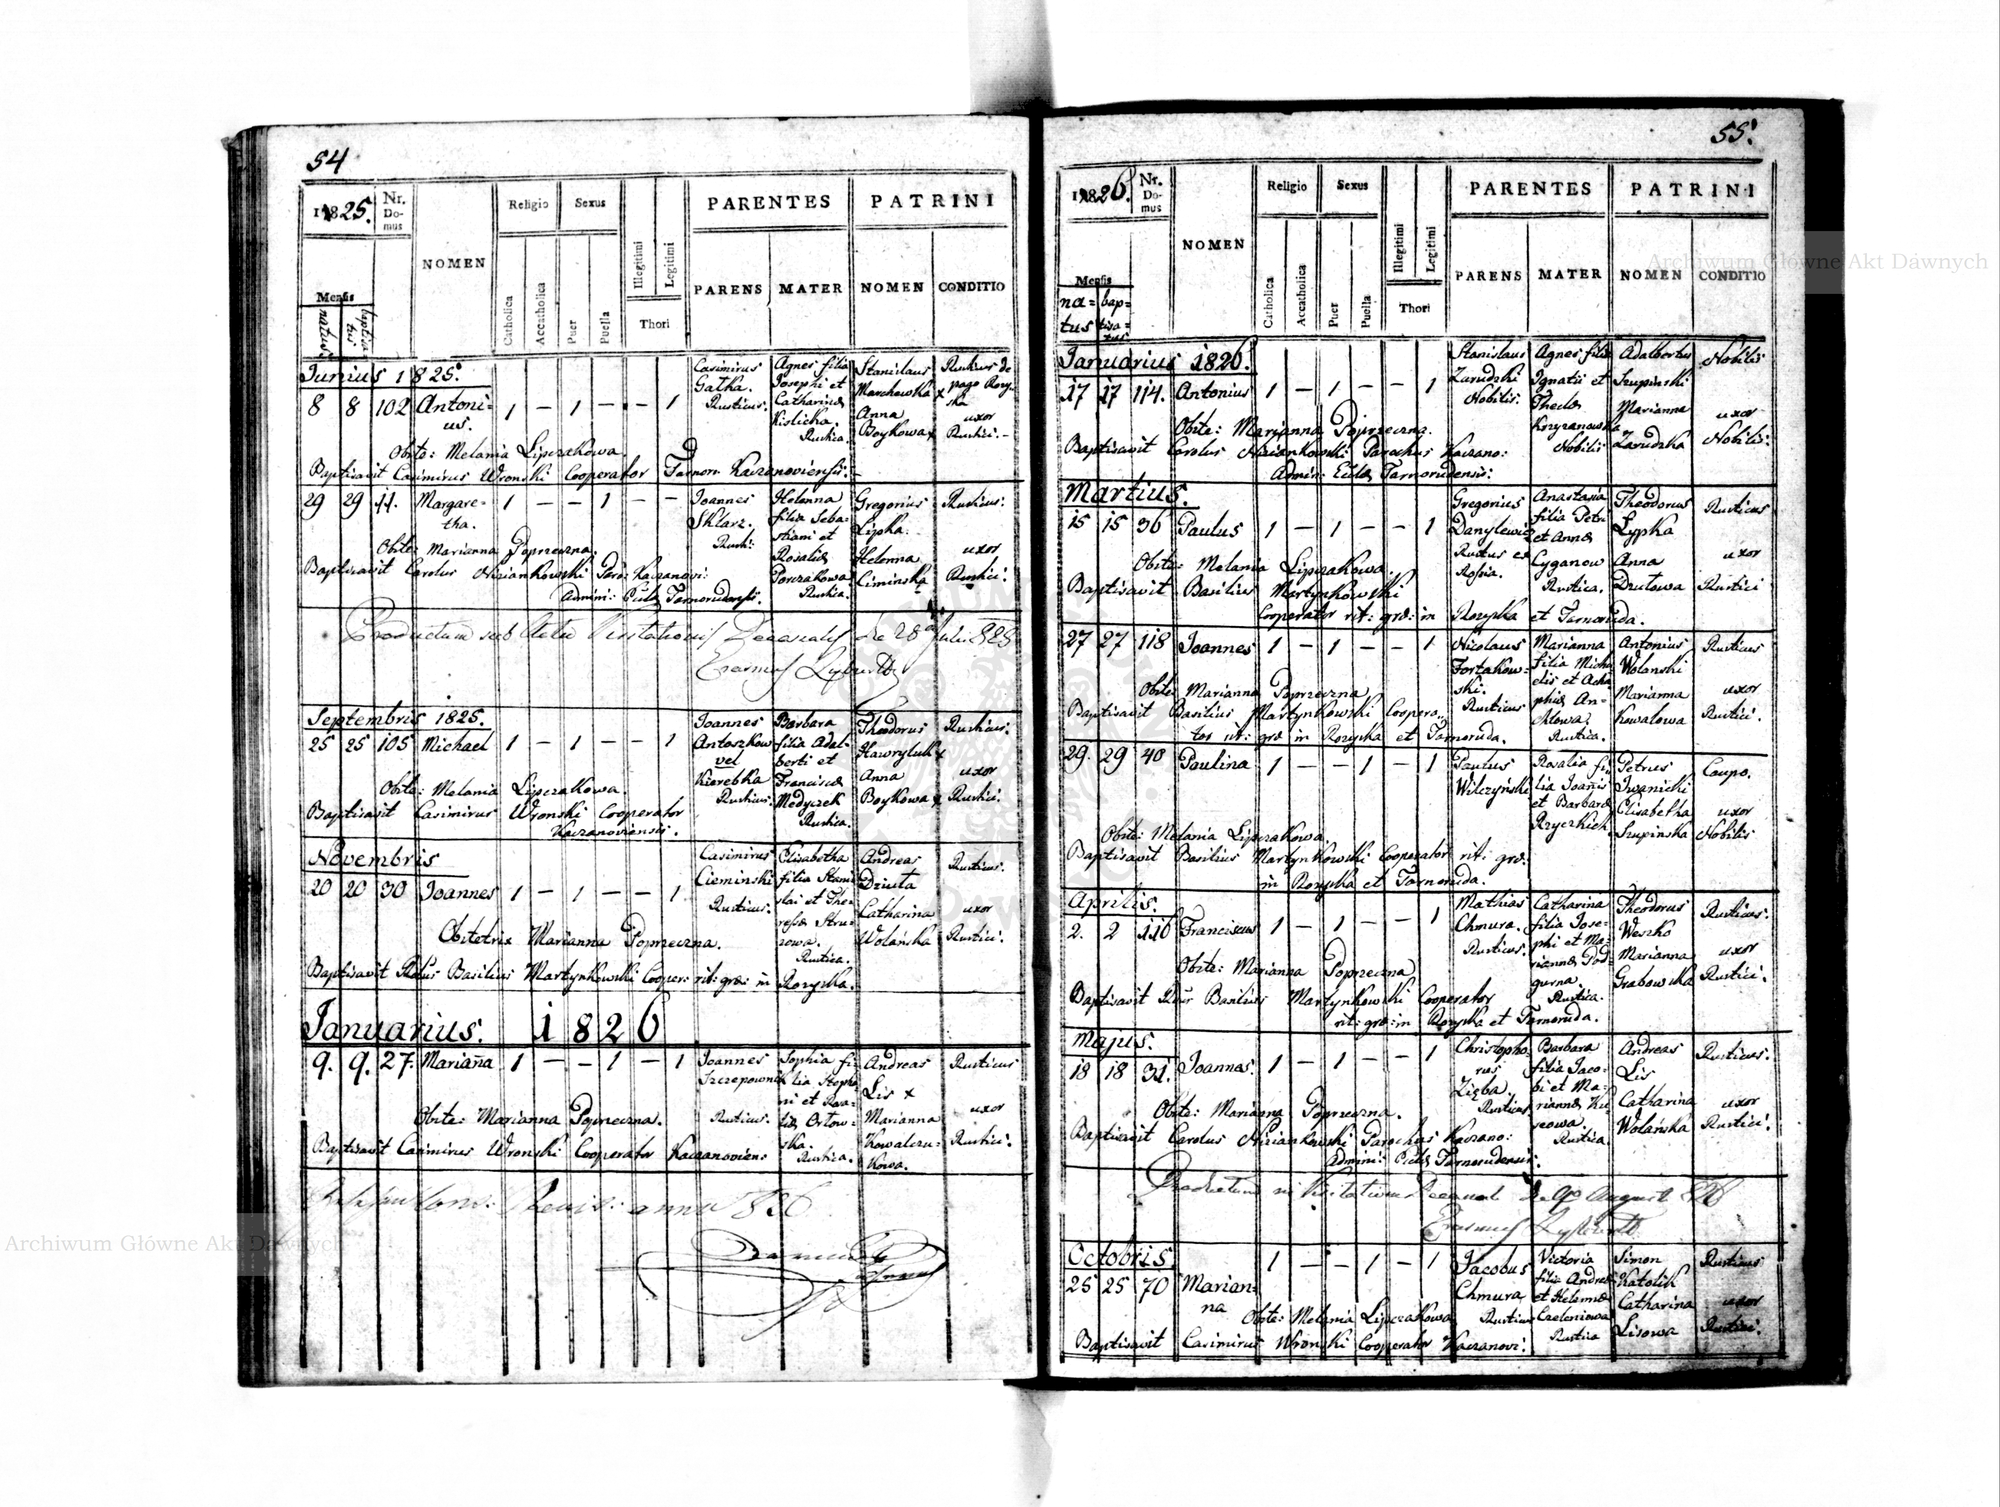 54
1825.
Nr. Domus
NOMEN
Religio
Sexus
Illegitimi
Legitimi
PARENTES
PATRINI
Mensis
natus
baptisatus
Catholica
Accatholica
Puer
Puella
Thori
PARENS
MATER
NOMEN
CONDITIO
Junius 1825.
8 8 102 Antonius. 1 – 1 – – 1
Casimirus Gatka. Rusticus.
Agnes filia Josephi et Catharinæ Kislicka. Rustica.
Stanislaus Manchowska x Anna Boykowa x
Rusticus de pago Rozyska uxor Rustici.
Obste: Melania Lipczakowa
Baptisavit Casimirus Wronski Cooperator Tarnor: Kaczanoviensis.
29 29 11. Margaretha. 1 – – 1 – –
Joannes Sklarz. Rusti:
Helenna filia Sebastiani et Rosaliæ Porczakowa Rustica.
Gregorius Lipka. Helenna Ciminska
Rusticus. uxor Rustici.
Obste: Marianna Poprzeczna.
Baptisavit Carolus Niziankowski Paro: Kaczanovi:
Admini: Eccl: Tarnorudensis.
Productum sub Actu Visitationis Decanalis de 28 Julii 825
Septembris 1825.
25 25 105 Michael 1 – 1 – – 1
Joannes Antoszkow vel Kierebka Rusticus.
Barbara filia Adalberti et Franciscæ Medyczek Rustica.
Theodorus Hawryluk x Anna Boykowa x
Rusticus. uxor Rustici.
Obste: Melania Lipczakowa
Baptisavit Casimirus Wronski Cooperator
Kaczanoviensis.
Novembris
20 20 30 Joannes 1 – 1 – – 1
Casimirus Cieminski Rusticus.
Elisabetha filia Stanislai et Theressæ Struzowa. Rustica.
Andreas Dziuta Catharina Wolańska
Rusticus. uxor Rustici.
Obstetrix Marianna Poprzeczna.
Baptisavit Basilius Martynkowski Cooper: rit: græ: in Rozyska.
Januarius. 1826
9. 9. 27. Mariaña 1 – – 1 – 1
Joannes Szczepownik Rusticus.
Sophia filia Stephani et Rosaliæ Ortowska. Rustica.
Andreas Lis x Marianna Kowalczukowa.
Rusticus uxor Rustici.
Obste: Marianna Poprzeczna.
Baptisavit Casimirus Wronski Cooperator Kaczanovien:
55.
1826.
Nr. Domus
NOMEN
Religio
Sexus
Illegitimi
Legitimi
PARENTES
PATRINI
Mensis
natus
baptisatus
Catholica
Accatholica
Puer
Puella
Thori
PARENS
MATER
NOMEN
CONDITIO
Januarius 1826.
17 17 114. Antonius 1 – 1 – – 1
Stanislaus Zarudzki Nobilis.
Agnes filia Ignatii et Theclæ Krzyzanowska Nobilis
Adalbertus Szupinski Marianna Zarudzka
Nobilis uxor Nobilis.
Obste: Marianna Poprzeczna.
Baptisavit Carolus Niziankowski Parochus Kaczano:
Admin: Eccl: Tarnorudensis:
Martius.
15 15 36 Paulus 1 – 1 – – 1
Gregorius Danylewicz Rusticus ex Rossia.
Anastasia filia Petri et Annæ Cyganow Rustica.
Theodorus Lypka Anna Dzutowa
Rusticus uxor Rustici
Obste: Melania Lipczakowa.
Baptisavit Basilius Martynkowski
Cooperator rit: græ: in Rozyska et Tarnoruda.
27 27 118 Joannes 1 – 1 – – 1
Nicolaus Fortakowski. Rusticus
Marianna filia Michaelis et Acaphiæ Anchtowa. Rustica.
Antonius Wolanski Marianna Kowalowa
Rusticus uxor Rustici.
Obste: Marianna Poprzeczna
Baptisavit Basilius Martynkowski Coopera:
tor rit: græ in Rozyska et Tarnoruda.
29. 29 40 Paulina 1 – – 1 – 1
Paulus Wilczyński
Rosalia filia Joañis et Barbaræ Ryczkich
Petrus Iwanicki Elisabetha Szupinska
Caupo. uxor Nobilis
Obste: Melania Lipczakowa.
Baptisavit Basilius Martynkowski Cooperator rit: græ:
in Rozyska et Tarnoruda.
Aprilis.
2. 2 116 Franciscus 1 – 1 – – 1
Mathias Chmura. Rusticus.
Catharina filia Josephi et Mariannæ Podgurna. Rustica.
Theodorus Weszko Marianna Grabowska
Rusticus. uxor Rustici.
Obste: Marianna Poprzeczna
Baptisavit Basilius Martynkowski Cooperator
rit: græ: in Rozyska et Tarnoruda.
Majus.
18 18 31. Joannes. 1 – 1 – – 1
Christophorus Zięba. Rusticus
Barbara filia Jacobi et Mariannæ Rustica
Andreas Lis Catharina Wolańska
Rusticus. uxor Rustici.
Obste: Marianna Poprzeczna.
Baptisavit Carolus Niziankowski Parochus Kaczano:
Admini: Eccl: Tarnorudensis:
Productum in Visitatione Decanali
Octobris
25 25 70 Marianna 1 – – 1 – 1
Jacobus Chmura Rusticus
Victoria filia Andreæ et Helennæ Czeleniowa Rustica
Simon Katolik Catharina Lisowa
Rusticus uxor Rustici.
Obste: Melania Lipczakowa
Baptisavit Casimirus Wronski Cooperator Kaczanovi:
Archiwum Główne Akt Dawnych
Archiwum Główne Akt Dawnych